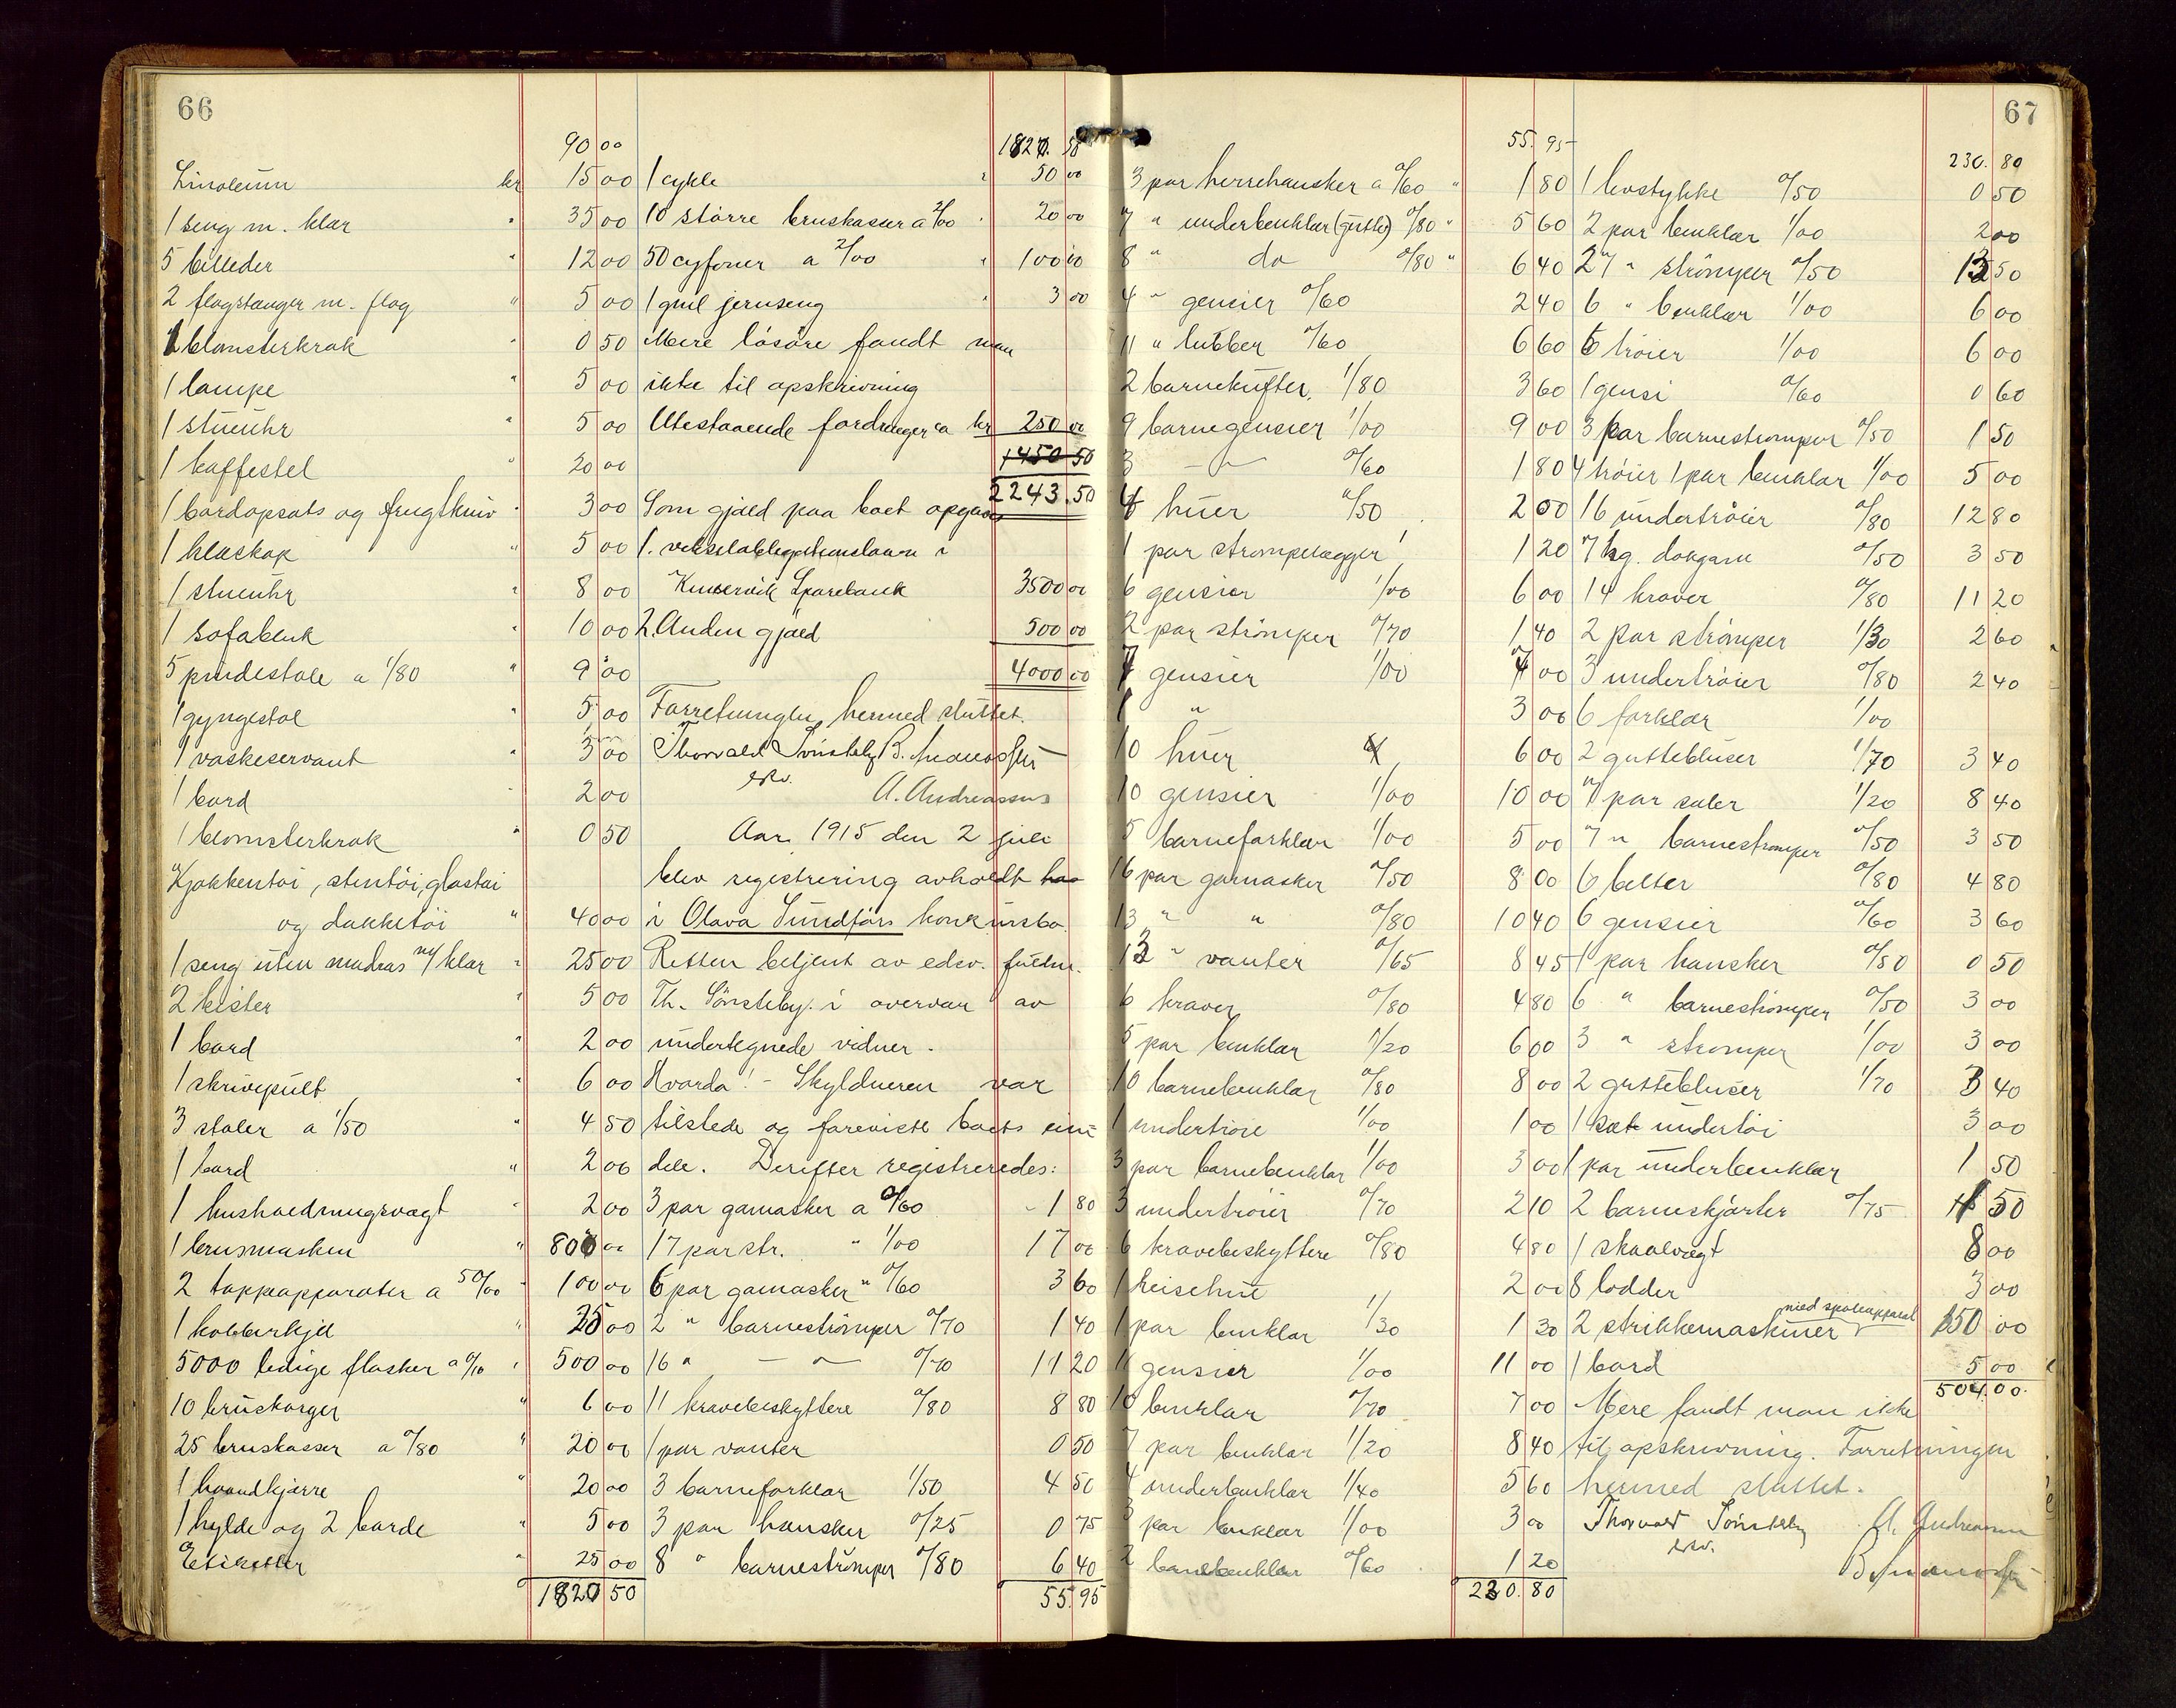 66
90 00
Linoleum kr 15 00
1 seng m. klær " 35 00
5 billeder " 12 00
2 flagstænger m. flag " 5 00
1 blomsterkrak " 0 50
1 lampe " 5 00
1 stueuhr " 5 00
1 kaffestel " 20 00
1 bordopsats og frugtkniv " 3 00
1 klæskap " 5 00
1 stueuhr " 8 00
1 sofabenk " 10 00
5 pindestole a 1/80 " 9 00
1 gyngestol " 5 00
1 vaskeservant " 3 00
1 bord 2 00
1 blomsterkrak " 0 50
Kjøkkentøi, stentøi, glastøi
og dækketøi " 40 00
1 seng uten madras m/ klær " 25 00
2 kister " 5 00
1 bord " 2 00
1 skrivepult " 6 00
3 stoler a 1/50 " 4 50
1 bord " 2 00
1 husholdningsvægt " 2 00
1 brusmaskin " 800 00
2 tappeapparater a 50/00 " 100 00
1 kobberkjel " 25 00
5000 ledige flasker a 0/10 " 500 00
10 bruskorger " 6 00
25 bruskasser a 0/80 " 20 00
1 haandkjærre " 20 00
1 hylde og 2 borde " 5 00
Etiketter " 25 00
1820 50
1820. 50
1 cykle " 50 00
10 større bruskasser a 2/00 " 20 00
50 cyfoner a 2/00 " 100 00
1 gml jernseng " 3 00
Mere løsøre fandt man
ikke til opskrivning
Utestaaende fordringer ca kr 250 00
1450 50
2243.50
Som gjæld paa boet opgaves
1. vekselobligationslaan i
Kinservik Sparebank 3500 00
2. Anden gjæld 500 00
4000 00
Forretningen hermed sluttet.
Thorvald Sønsteby
A. Andreassen
Aar 1915 den 2 juli
blev registrering avholdt hos
i Olava Sundførs konkursbo.
Retten betjent av edsv. fuldm.
Th. Sønsteby i overvær av
undertegnede vidner.
Hvorda! - Skyldneren var
tilstede og foreviste boets eien
dele. Derefter registreredes:
3 par gamasker a 0/60 " 1 80
17 par str. " 1/00 17 00
6 par gamasker " 0/60 3 60
2 " barnestrømper 0/70 1 40
16 " — " — 0/70 11 20
11 kravebeskyttere 0/80 8 80
1 par vanter 0 50
3 barneforklær 1/50 4 50
3 par hansker 0/25 0 75
8 " barnestrømper 0/80 6 40
55.95
67
55. 95
3 par herrehansker a 0/60 " 1 80
7 " underbenklær (gutte) 0/80 " 5 60
8 " do 0/80 " 6 40
4 " gensier 0/60 2 40
11 " lubber 0/60 6 60
2 barnekufter 1/80 3 60
9 barnegensier 1/00 9 00
3 — " — 0/60 1 80
4 huer 0/50 2 00
1 par strømpelægger 1 20
6 gensier 1/00 6 00
2 par strømper 0/70 1 40
7 gensier 1/00 7 00
" 3 00
10 huer 6 00
10 gensier 1/00 10 00
5 barneforklær 1/00 5 00
16 par gamasker 0/50 8 00
13 " " 0/80 10 40
13 " vanter 0/65 8 45
6 kraver 0/80 4 80
5 par benklær 1/20 6 00
10 barnebenklær 0/80 8 00
1 undertrøie 1/00 1 00
3 par barnebenklær 1/00 3 00
3 undertrøier 0/70 2 10
6 kravebeskyttere 0/80 4 80
1 reisehue 2 00
1 par benklær 1/30 1 30
11 gensier 1/00 11 00
10 benklær 0/70 7 00
7 par benklær 1/20 8 40
4 underbenklær 1/40 5 60
3 par benklær 1/00 3 00
2 barnebenklær 0/60 1 20
230. 80
230. 80
1 livstykke 0/50 0 50
2 par benklær 1/00 2 00
27 " strømper 0/50 13 50
6 " benklær 1/00 6 00
6 trøier 1/00 6 00
1 gensi 0/60 0 60
3 par barnestrømper 0/50 1 50
4 trøier 1 par benklær 1/00 5 00
16 undertrøier 0/80 12 80
7 hg. dokgarn 0/50 3 50
14 kraver 0/80 11 20
2 par strømper 1/30 2 60
3 undertrøier 0/80 2 40
6 forklær 1/00
2 guttebluser 1/70 3 40
7 par saler 1/20 8 40
7 " barnestrømper 0/50 3 50
6 belter 0/80 4 80
6 gensier 0/60 3 60
1 par hansker 0/50 0 50
6 " barnestrømper 0/50 3 00
3 " strømper 1/00 3 00
2 guttebluser 1/70 3 40
1 sæt undertøi 3 00
1 par underbenklær 1 50
2 barneskjørter 0/75 1 50
1 skaalvegt 8 00
8 lodder 3 00
med spoleapparat
2 strikkemaskiner 150 00
1 bord 5 00
504.00.
Mere fandt man ikke
til opskrivning. Forretningen
hermed sluttet.
Thorvald Sønsteby A. Andreassen